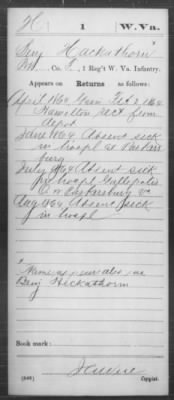 H | 1 | W. Va.
Benj Hackathorn
Pvt., Co. I., 1 Reg't W. Va. Infantry.
Appears on Returns as follows:
April 1864 Gain Feb 2, 1864
Hamilton, Rect from
depot
June 1864 Absent sick
in hospl at Parkers
burg
July 1864 Absent sick
in hospl Gallipolis
O. or Parkersburg Va
Aug 1864 Absent sick
in hospl
Name appears also as
Benj Heckathorn
Book mark:
(546)
Copyist.